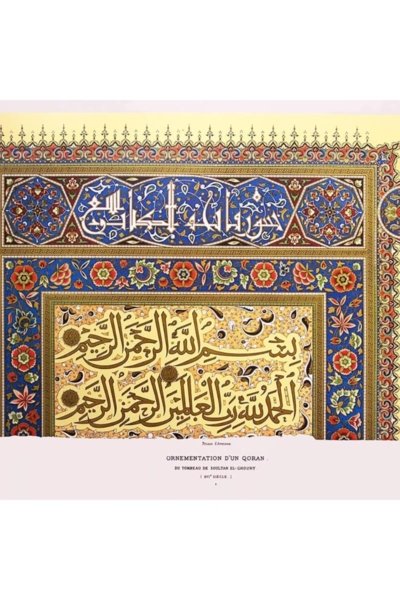 بسم الله الرحمن الرحيم
الحمد لله رب العالمين الرحمن الرحيم
Prisse d'Avennes
ORNEMENTATION D'UN QORAN
DU TOMBEAU DE SOULTAN EL-GHOURY
( XVIᵉ SIÈCLE )